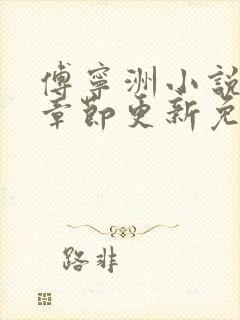 傅寧洲小說
章節更新免
路非